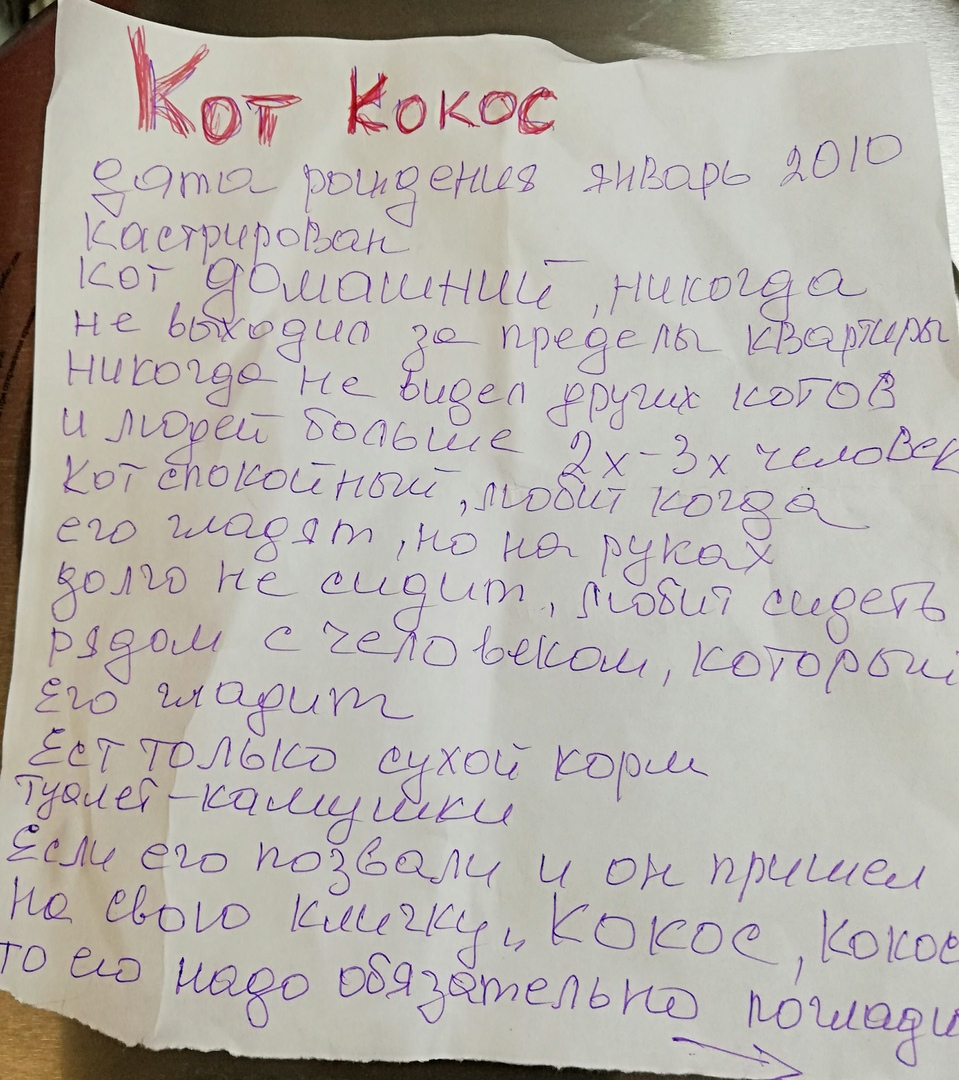 Кот Кокос
дата рождения январь 2010
Кастрирован
Кот домашний, никогда
не выходил за пределы квартиры
никогда не видел других котов
и людей больше 2х-3х человек
Кот спокойный, любит когда
его гладят, но на руках
долго не сидит, любит сидеть
рядом с человеком, который
его гладит
Ест только сухой корм
Туалет-камушки
Если его позвали и он пришел
на свою кличку „Кокос, Кокос
то его надо обязательно поглади